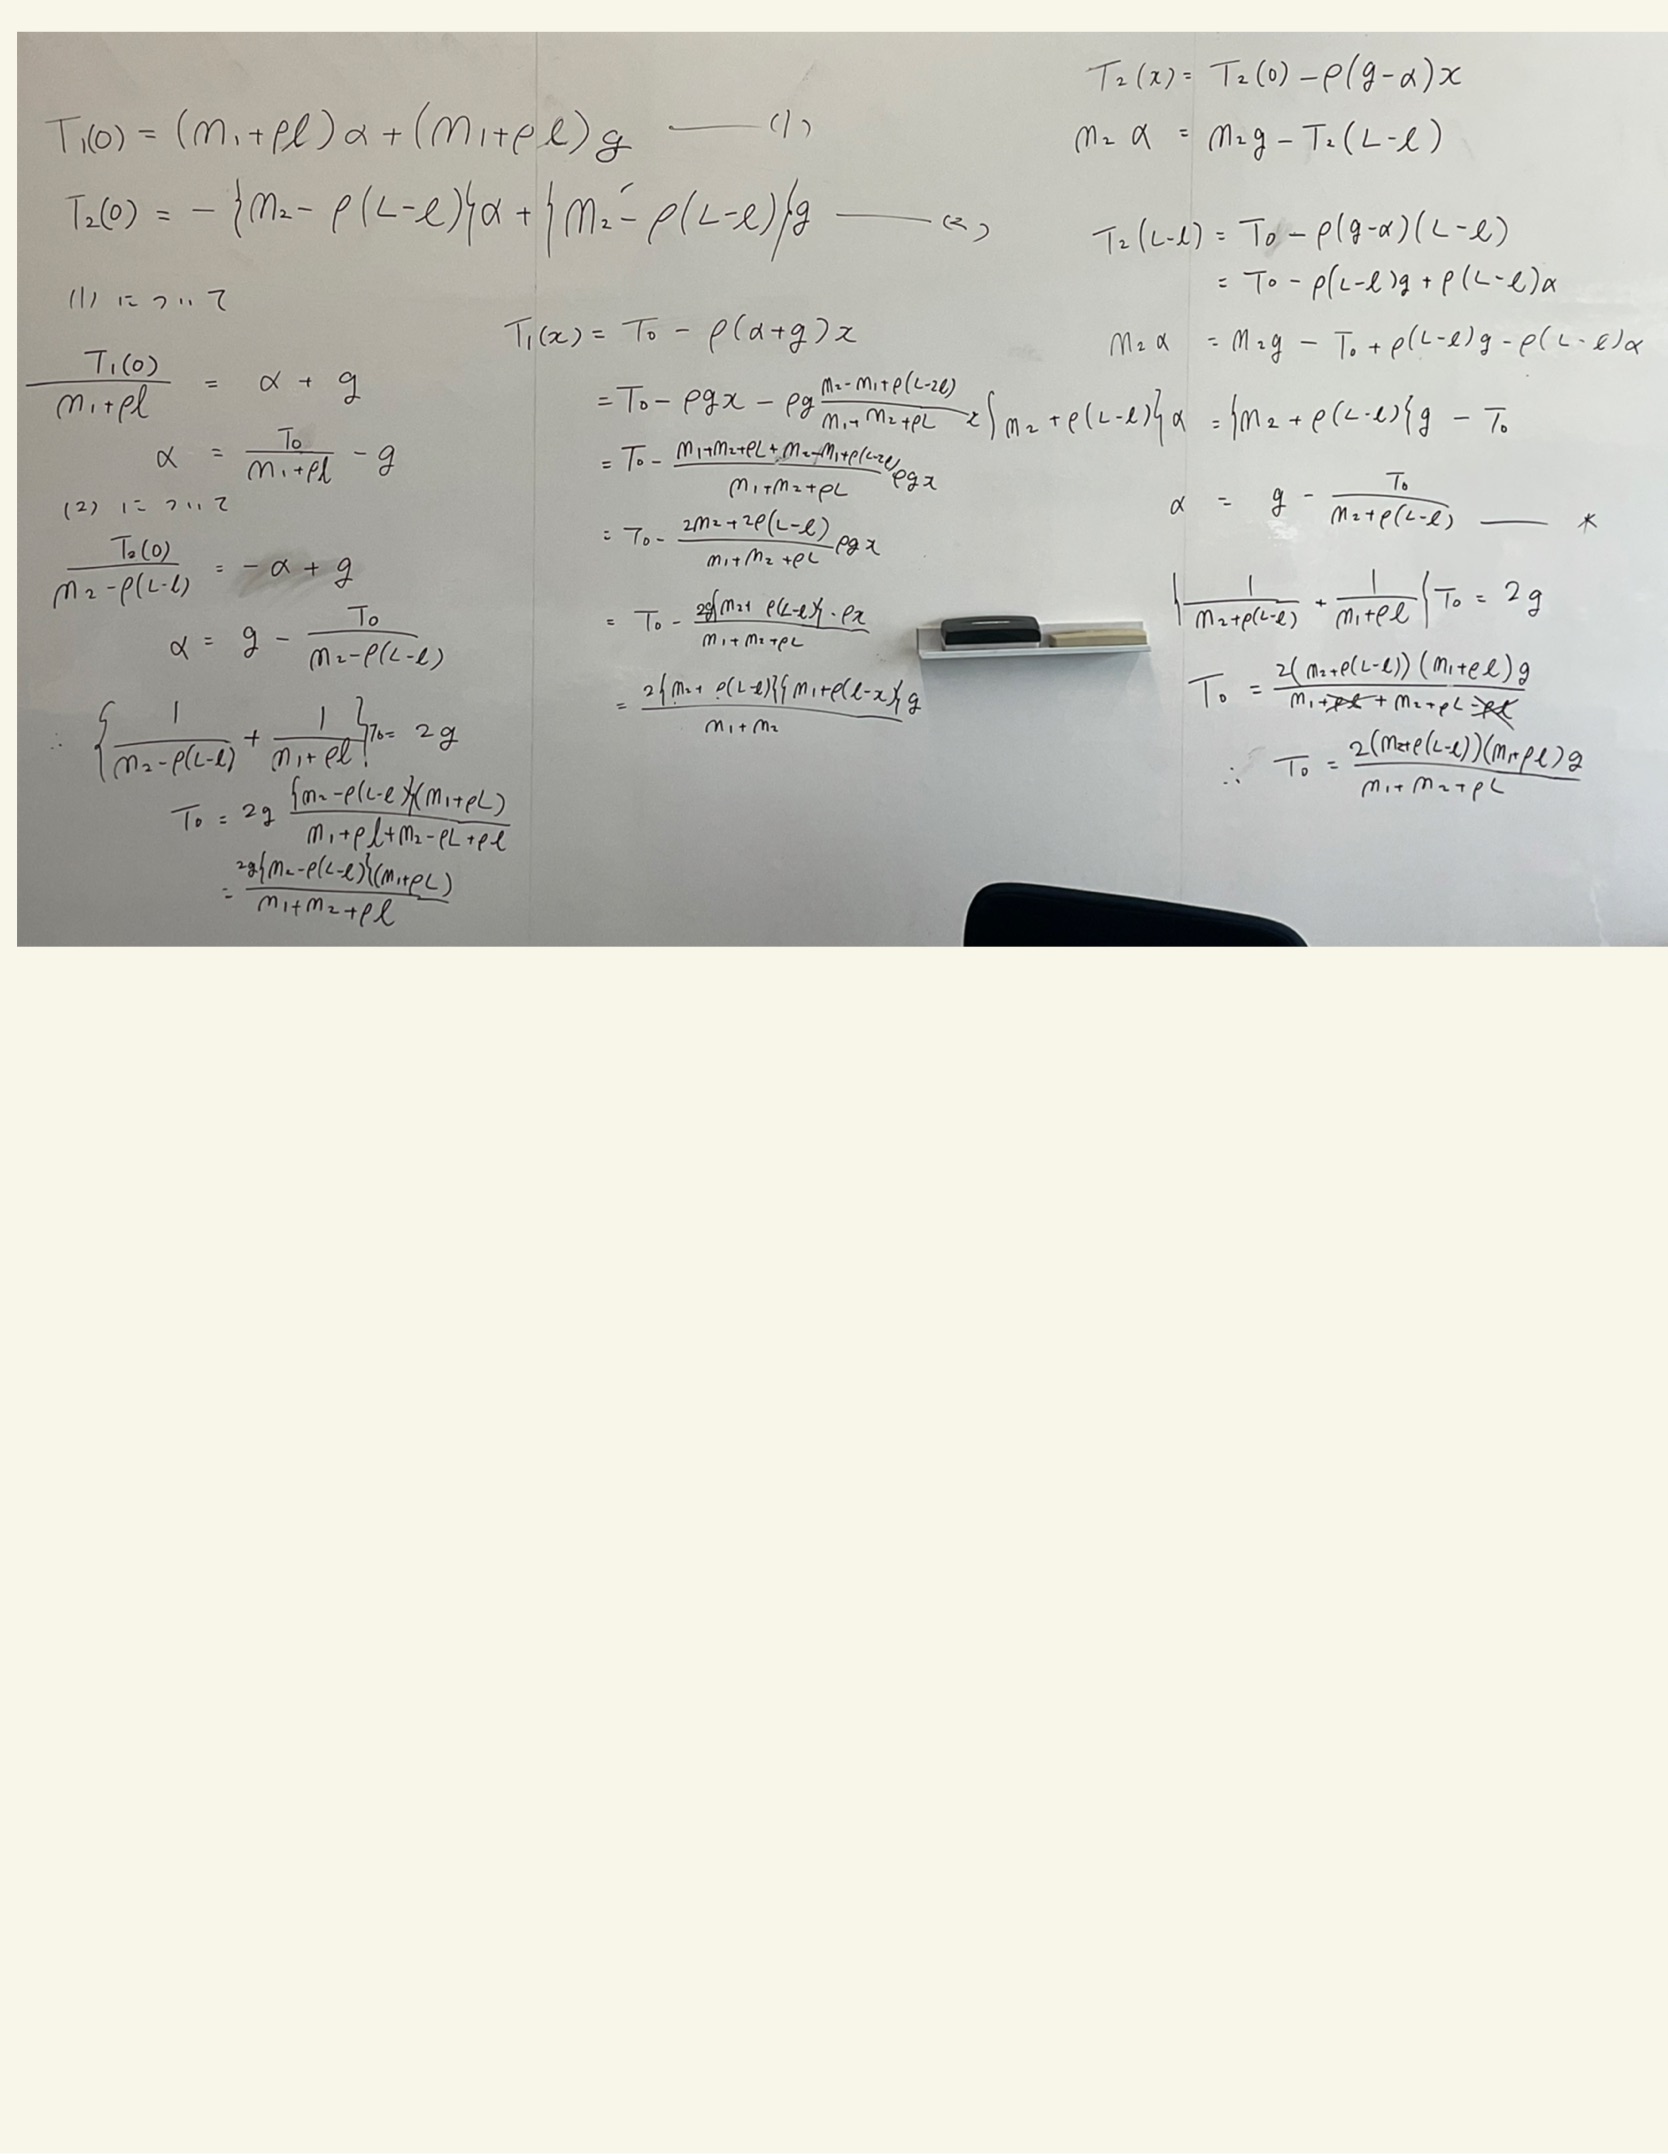 T₁(0) = (m₁+ρl)α + (m₁+ρl)g —— (1)
T₂(0) = −{m₂−ρ(L−l)}α + {m₂−ρ(L−l)}g —— (2)
(1) について
T₁(0)/(m₁+ρl) = α + g
α = T₀/(m₁+ρl) − g
(2) について
T₂(0)/(m₂−ρ(L−l)) = −α + g
α = g − T₀/(m₂−ρ(L−l))
∴ {1/(m₂−ρ(L−l)) + 1/(m₁+ρl)}T₀ = 2g
T₀ = 2g {m₂−ρ(L−l)}(m₁+ρL)/(m₁+ρl+m₂−ρL+ρl)
= 2g{m₂−ρ(L−l)}(m₁+ρL)/(m₁+m₂+ρl)
T₁(x) = T₀ − ρ(α+g)x
= T₀ − ρgx − ρg (m₂−m₁+ρ(L−2l))/(m₁+m₂+ρL) x
= T₀ − (m₁+m₂+ρL+m₂−m₁+ρ(L−2l))/(m₁+m₂+ρL) ρgx
= T₀ − (2m₂+2ρ(L−l))/(m₁+m₂+ρL) ρgx
= T₀ − (2g{m₂+ρ(L−l)}·ρx)/(m₁+m₂+ρL)
= 2{m₂+ρ(L−l)}{m₁+ρ(l−x)}g/(m₁+m₂)
T₂(x) = T₂(0) − ρ(g−α)x
m₂α = m₂g − T₂(L−l)
T₂(L−l) = T₀ − ρ(g−α)(L−l)
= T₀ − ρ(L−l)g + ρ(L−l)α
m₂α = m₂g − T₀ + ρ(L−l)g − ρ(L−l)α
{m₂+ρ(L−l)}α = {m₂+ρ(L−l)}g − T₀
α = g − T₀/(m₂+ρ(L−l)) —— *
{1/(m₂+ρ(L−l)) + 1/(m₁+ρl)}T₀ = 2g
T₀ = 2(m₂+ρ(L−l))(m₁+ρl)g/(m₁+ρl+m₂+ρL−ρl)
∴ T₀ = 2(m₂+ρ(L−l))(m₁+ρl)g/(m₁+m₂+ρL)